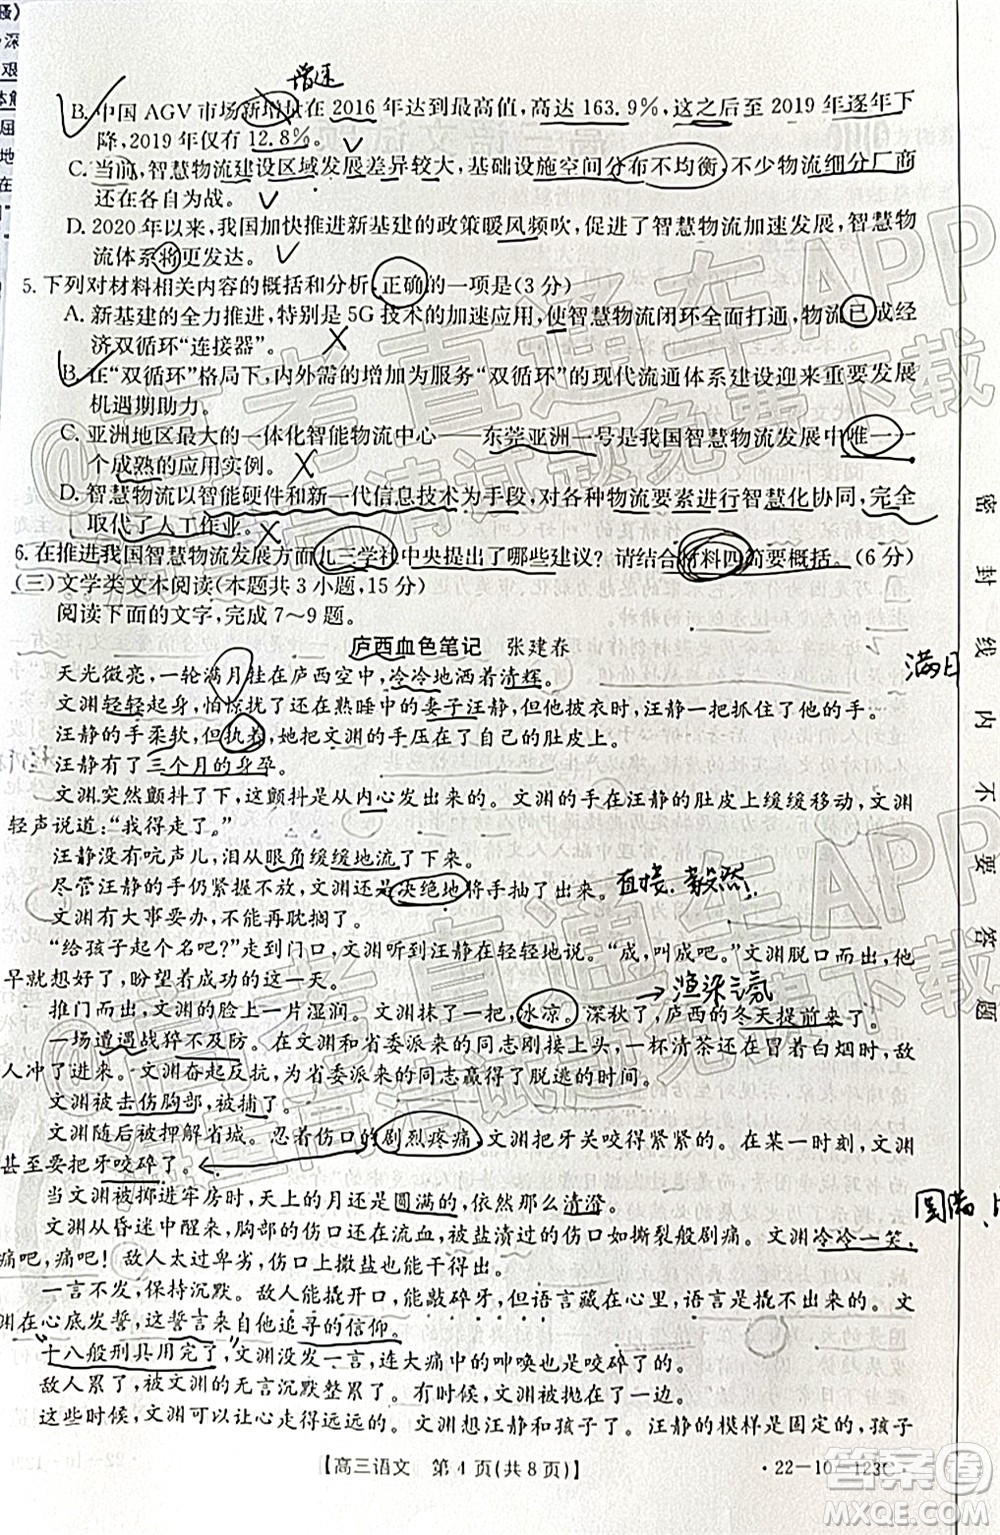 增速
B. 中国 AGV 市场新增量在 2016 年达到最高值,高达 163.9%,这之后至 2019 年逐年下
降,2019 年仅有 12.8%。
C. 当前,智慧物流建设区域发展差异较大,基础设施空间分布不均衡,不少物流细分厂商
还在各自为战。
D. 2020 年以来,我国加快推进新基建的政策暖风频吹,促使智慧物流加速发展,智慧物
流体系将更发达。
5. 下列对材料相关内容的概括和分析,正确的一项是(3 分)
A. 新基建的全力推进,特别是 5G 技术的加速应用,使智慧物流闭环全面打通,物流已成经
济双循环“连接器”。
B. 在“双循环”格局下,内外需的增加为服务“双循环”的现代流通体系建设迎来重大
机遇期助力。
C. 亚洲地区最大的一体化智能物流中心——东莞亚洲一号是我国智慧物流发展中唯一一
个成熟的应用实例。
D. 智慧物流以智能硬件和新一代信息技术为手段,对各种物流要素进行智慧化协同,完全
取代了人工作业。
6. 在推进我国智慧物流发展方面九三学社中央提出了哪些建议?请结合材料四简要概括。(6 分)
(三)文学类文本阅读(本题共 3 小题,15 分)
阅读下面的文字,完成 7~9 题。
庐西血色笔记 张建春
天光微亮,一轮满月挂在庐西空中,冷冷地洒着清辉。
文渊轻轻起身,怕惊扰了在熟睡中的妻子汪静,但他披衣时,汪静一把抓住了他的手。
汪静的手柔软,但执着,她把文渊的手压在了肚皮上。
汪静有了三个月的身孕。
文渊突然颤抖了下,这颤抖是从内心发出来的。文渊的手在汪静的肚皮上缓缓移动,文渊
轻声说道:“我得走了。”
汪静没有吭声儿,泪从眼角缓缓地流了下来。
尽管汪静的手仍紧握不放,文渊还是决绝地将手抽了出来。
直接、毅然
文渊有大事要办,不能再耽搁了。
“给孩子起个名吧?”走到门口,文渊听到汪静在轻轻地说。“成,叫成吧。”文渊脱口而出,
早就想好了,盼望着成功的这一天。
渲染氛
推门而出,文渊的脸上一片湿润。文渊摸了一把,冰凉。深秋了,庐西的冬天提前来了。
一场遭遇战猝不及防。文渊和省委派来的同志刚接上头,一杯清茶还在冒着白烟时,敌
人冲了进来。文渊奋起反抗,为省委派来的同志赢得了脱逃的时间。
文渊被击伤胸部,被捕了。
文渊随后被押解省城。忍着伤口的剧烈疼痛,文渊把牙关咬得紧紧的。在某一时刻,文渊
甚至要把牙咬碎了。
当文渊被掷进牢房时,天上的月还是圆满的,依然那么清澄。
文渊从昏迷中醒来,胸部的伤口还在流血,被盐渍过的伤口如撕裂般剧痛。文渊冷冷一笑,
痛吧,痛吧!敌人太过卑劣,伤口上撒盐也能干得出。
一言不发,保持沉默。敌人能撬开嘴,能敲碎牙,但语言藏在心里,语言是撬不出来的。文
渊在心底发誓,这誓言来自他追寻的信仰。
十八般刑具用完了,文渊没发一言,连大痛中的呻唤也咬碎了。
敌人累了,被文渊的无言沉默整累了。文渊被抛在了一边。
这些时候,文渊可以让心走得远远的。文渊想汪静和孩子了。汪静的模样是固定的,孩子
【高三语文 第 4 页(共 8 页)】
·22-10-123C·
密封线内不要答题
圆满、
答案圈
MXQE.COM